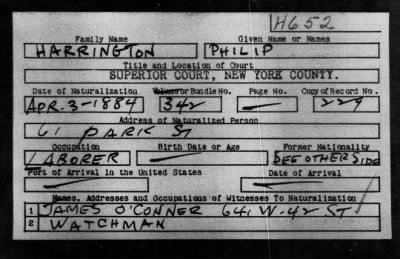 H652
Family Name Given Name or Names
HARRINGTON PHILIP
Title and Location of Court
SUPERIOR COURT, NEW YORK COUNTY.
Date of Naturalization Volume or Bundle No. Page No. Copy of Record No.
APR. 3-1884 342 — 229
Address of Naturalized Person
61 PARK ST
Occupation Birth Date or Age Former Nationality
LABORER — SEE OTHER SIDE
Port of Arrival in the United States Date of Arrival
— —
Names, Addresses and Occupations of Witnesses To Naturalization
1 JAMES O'CONNER 641 W. 42 ST
2 WATCHMAN